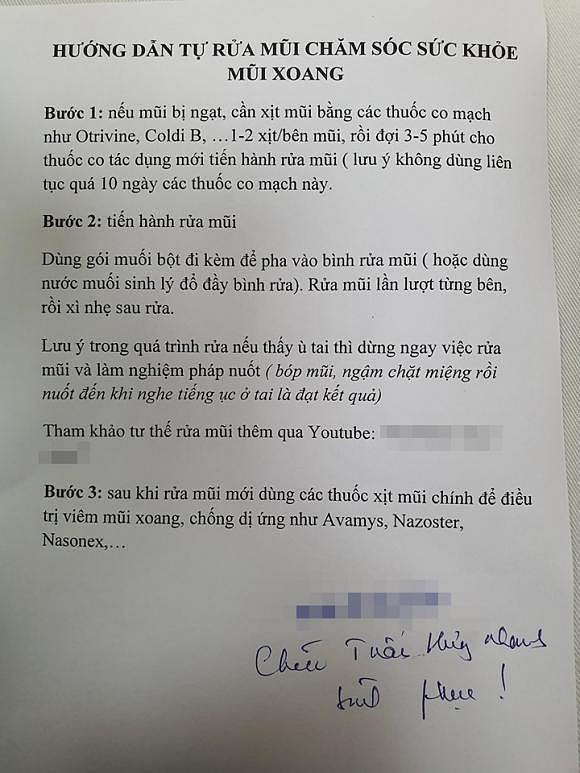 HƯỚNG DẪN TỰ RỬA MŨI CHĂM SÓC SỨC KHỎE
MŨI XOANG
Bước 1: nếu mũi bị ngạt, cần xịt mũi bằng các thuốc co mạch
như Otrivine, Coldi B, …1-2 xịt/bên mũi, rồi đợi 3-5 phút cho
thuốc co tác dụng mới tiến hành rửa mũi ( lưu ý không dùng liên
tục quá 10 ngày các thuốc co mạch này.
Bước 2: tiến hành rửa mũi
Dùng gói muối bột đi kèm để pha vào bình rửa mũi ( hoặc dùng
nước muối sinh lý đổ đầy bình rửa). Rửa mũi lần lượt từng bên,
rồi xì nhẹ sau rửa.
Lưu ý trong quá trình rửa nếu thấy ù tai thì dừng ngay việc rửa
mũi và làm nghiệm pháp nuốt ( bóp mũi, ngậm chặt miệng rồi
nuốt đến khi nghe tiếng ục ở tai là đạt kết quả)
Tham khảo tư thế rửa mũi thêm qua Youtube:
Bước 3: sau khi rửa mũi mới dùng các thuốc xịt mũi chính để điều
trị viêm mũi xoang, chống dị ứng như Avamys, Nazoster,
Nasonex,…
phục !